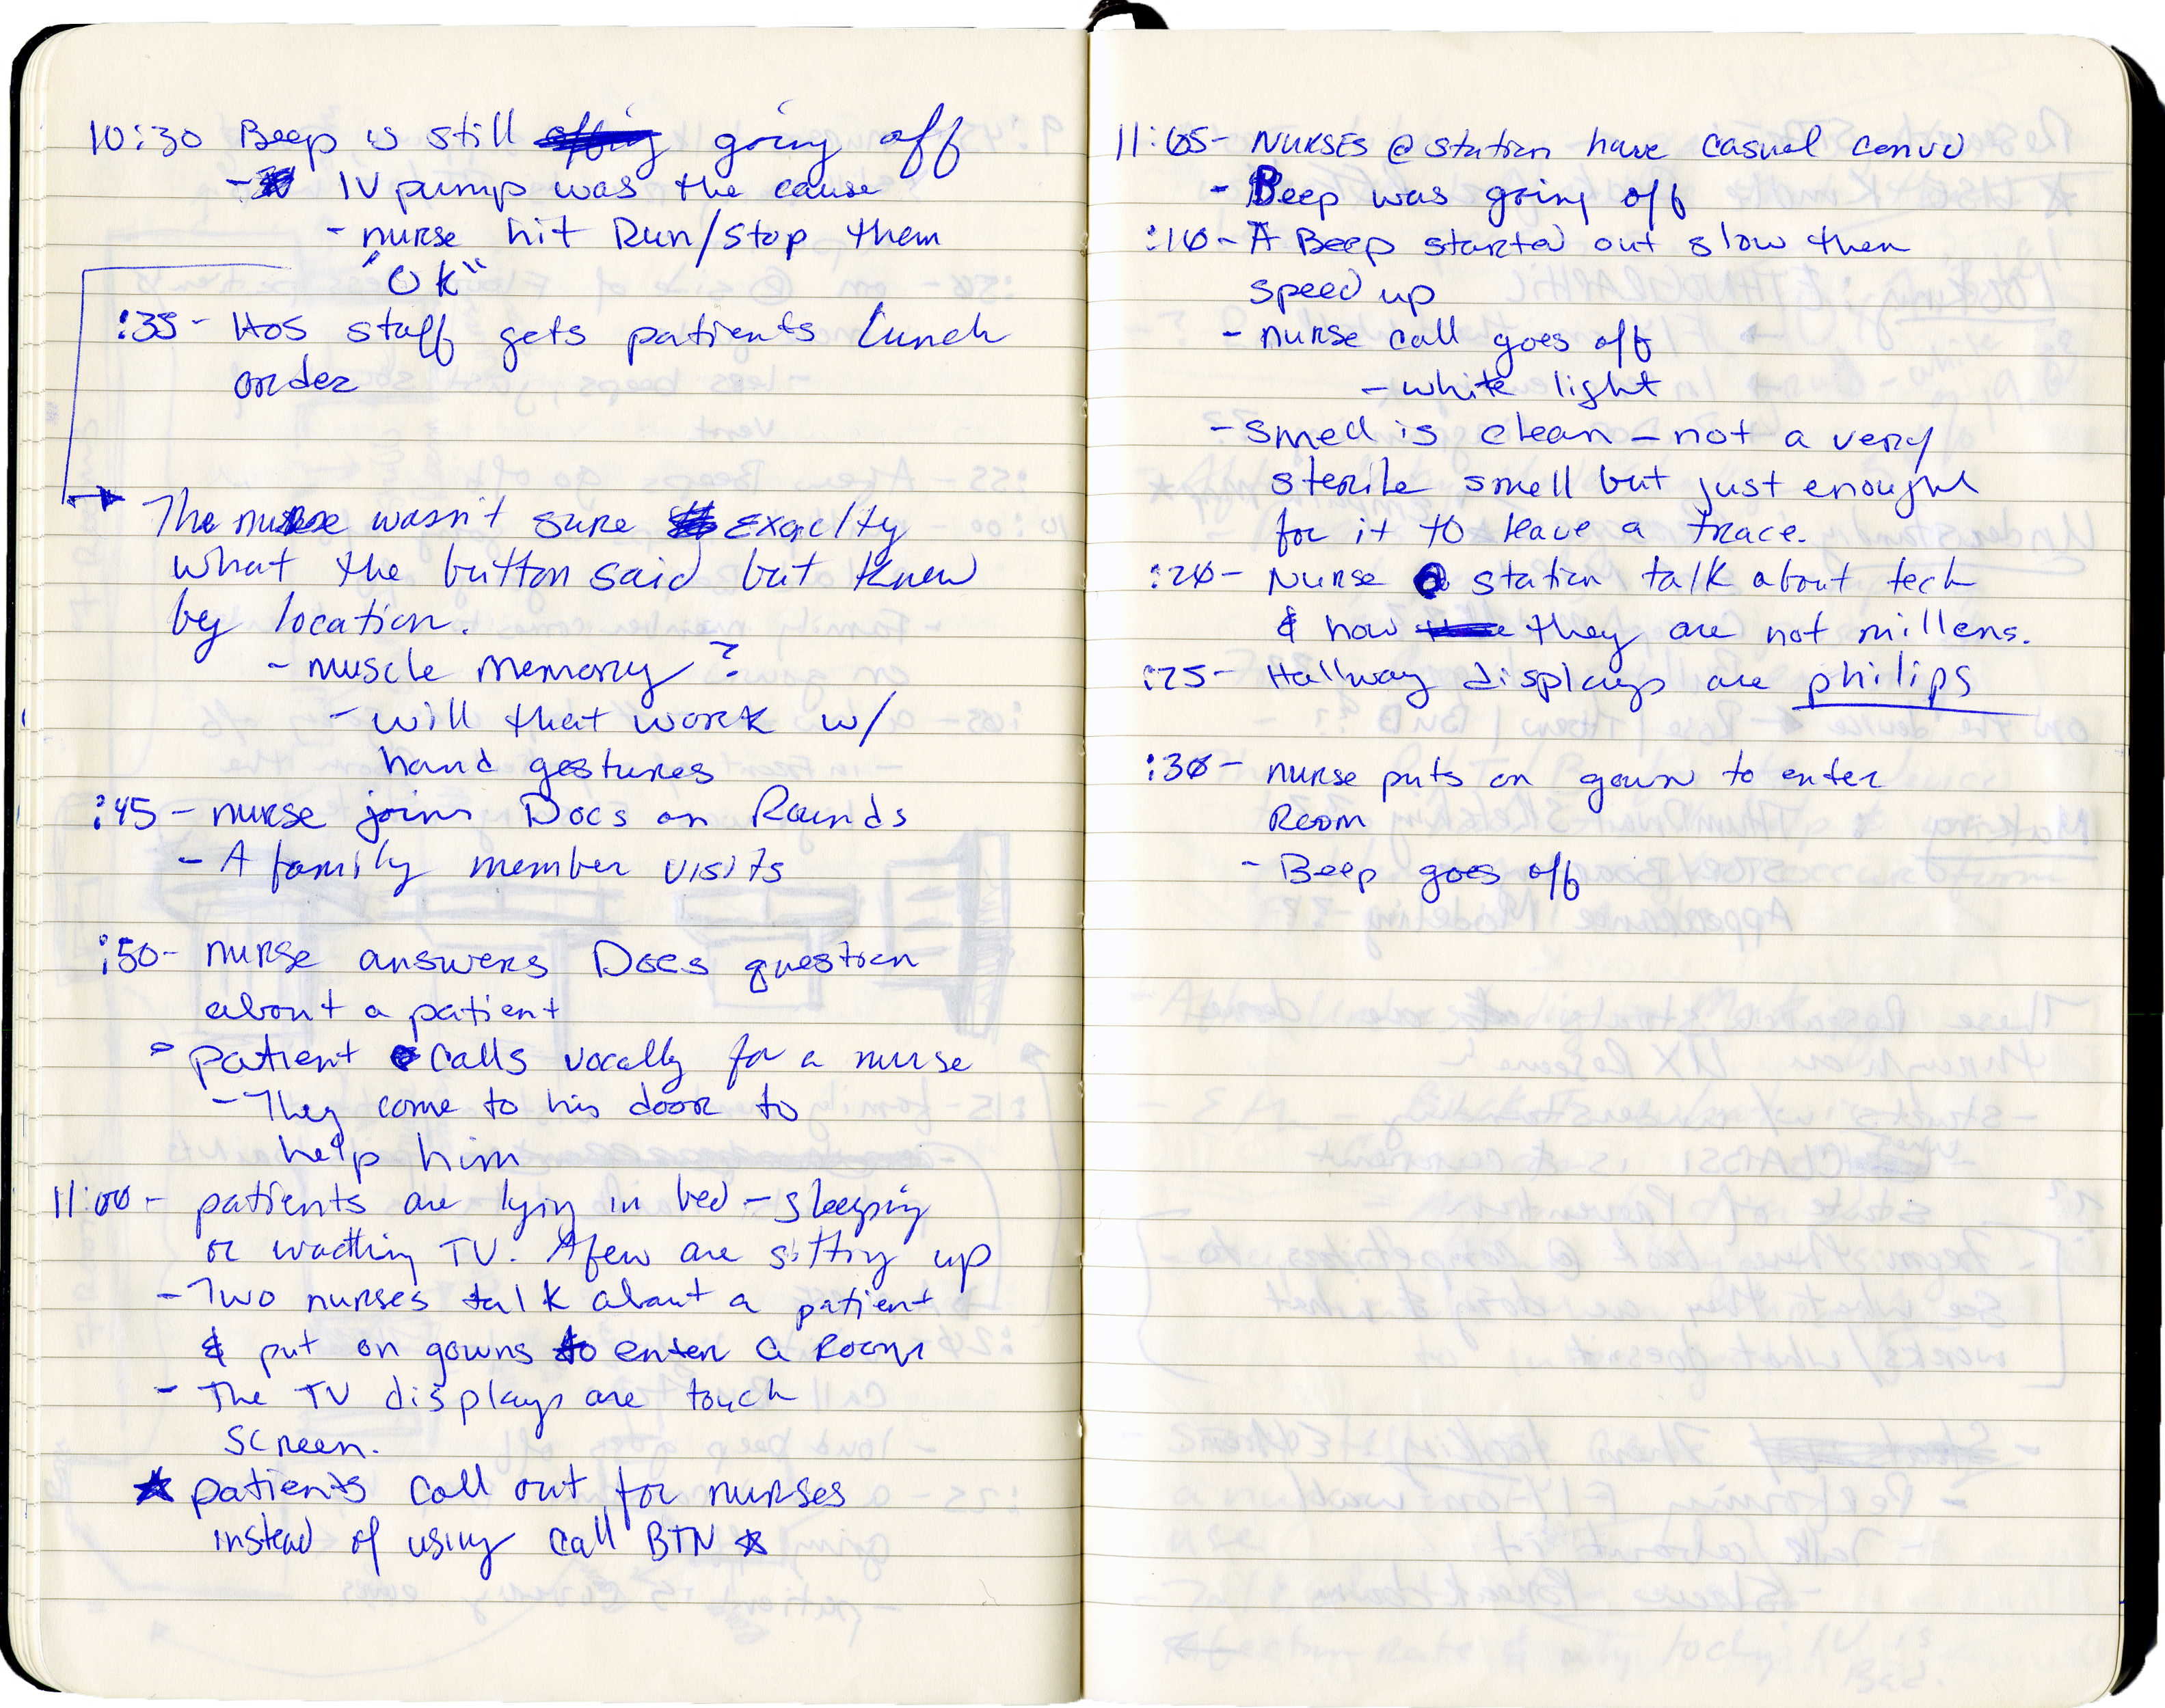 10:30 Beep is still going off
- IV pump was the cause
- nurse hit Run/Stop them
"OK"
:35- Hos staff gets patients lunch
order
The nurse wasn't sure exaclty
what the button said but knew
by location.
- muscle memory?
- will that work w/
hand gestures
:45- nurse joins Docs on Rounds
- A family member visits
:50- nurse answers Docs question
about a patient
- patient calls vocally for a nurse
- They come to his door to
help him
11:00- patients are lying in bed - sleeping
or wacthing TV. A few are sitting up
- Two nurses talk about a patient
& put on gowns to enter a room
- The TV displays are touch
screen.
★ patients call out for nurses
instead of using call BTN ★
11:05- NURSES @ station have casual convo
- Beep was going off
:10- A Beep started out slow then
speed up
- nurse call goes off
- white light
- smell is clean - not a very
sterile smell but just enough
for it to leave a trace.
:20- Nurse @ station talk about tech
& how they are not millens.
:25- Hallway displays are philips
:30- nurse puts on gown to enter
Room
- Beep goes off